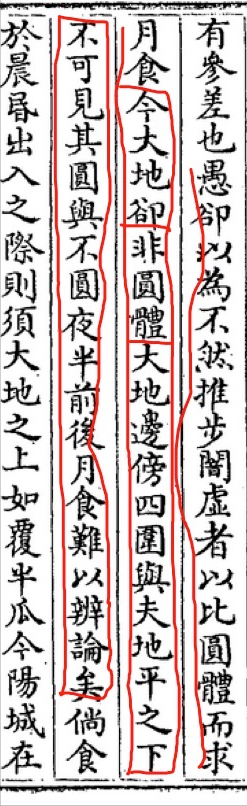 有參差也愚卻以為不然推步闇虛者以比圓體而求
月食今大地卻非圓體大地邊傍四圍與夫地平之下
不可見其圓與不圓夜半前後月食難以辨論矣倘食
於晨昏出入之際則須大地之上如覆半瓜今陽城在